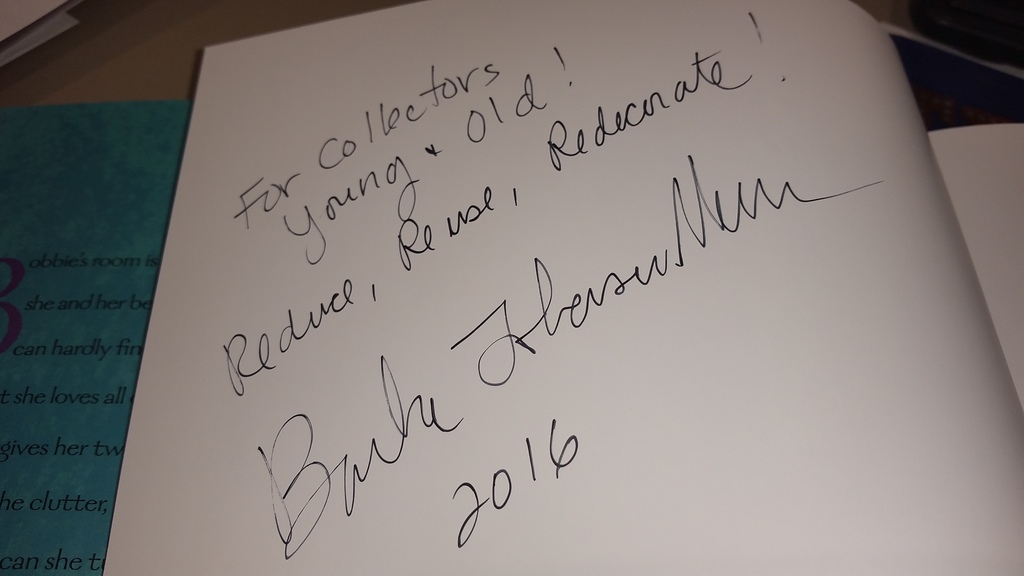 For collectors
young & Old!
Reduce, Reuse, Redecorate!
2016
Bobbie's room is
she and her be
can hardly fin
t she loves all
gives her tw
he clutter,
can she t